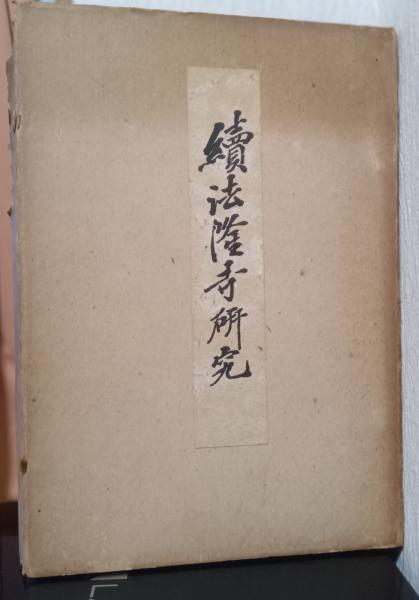 續法隆寺研究